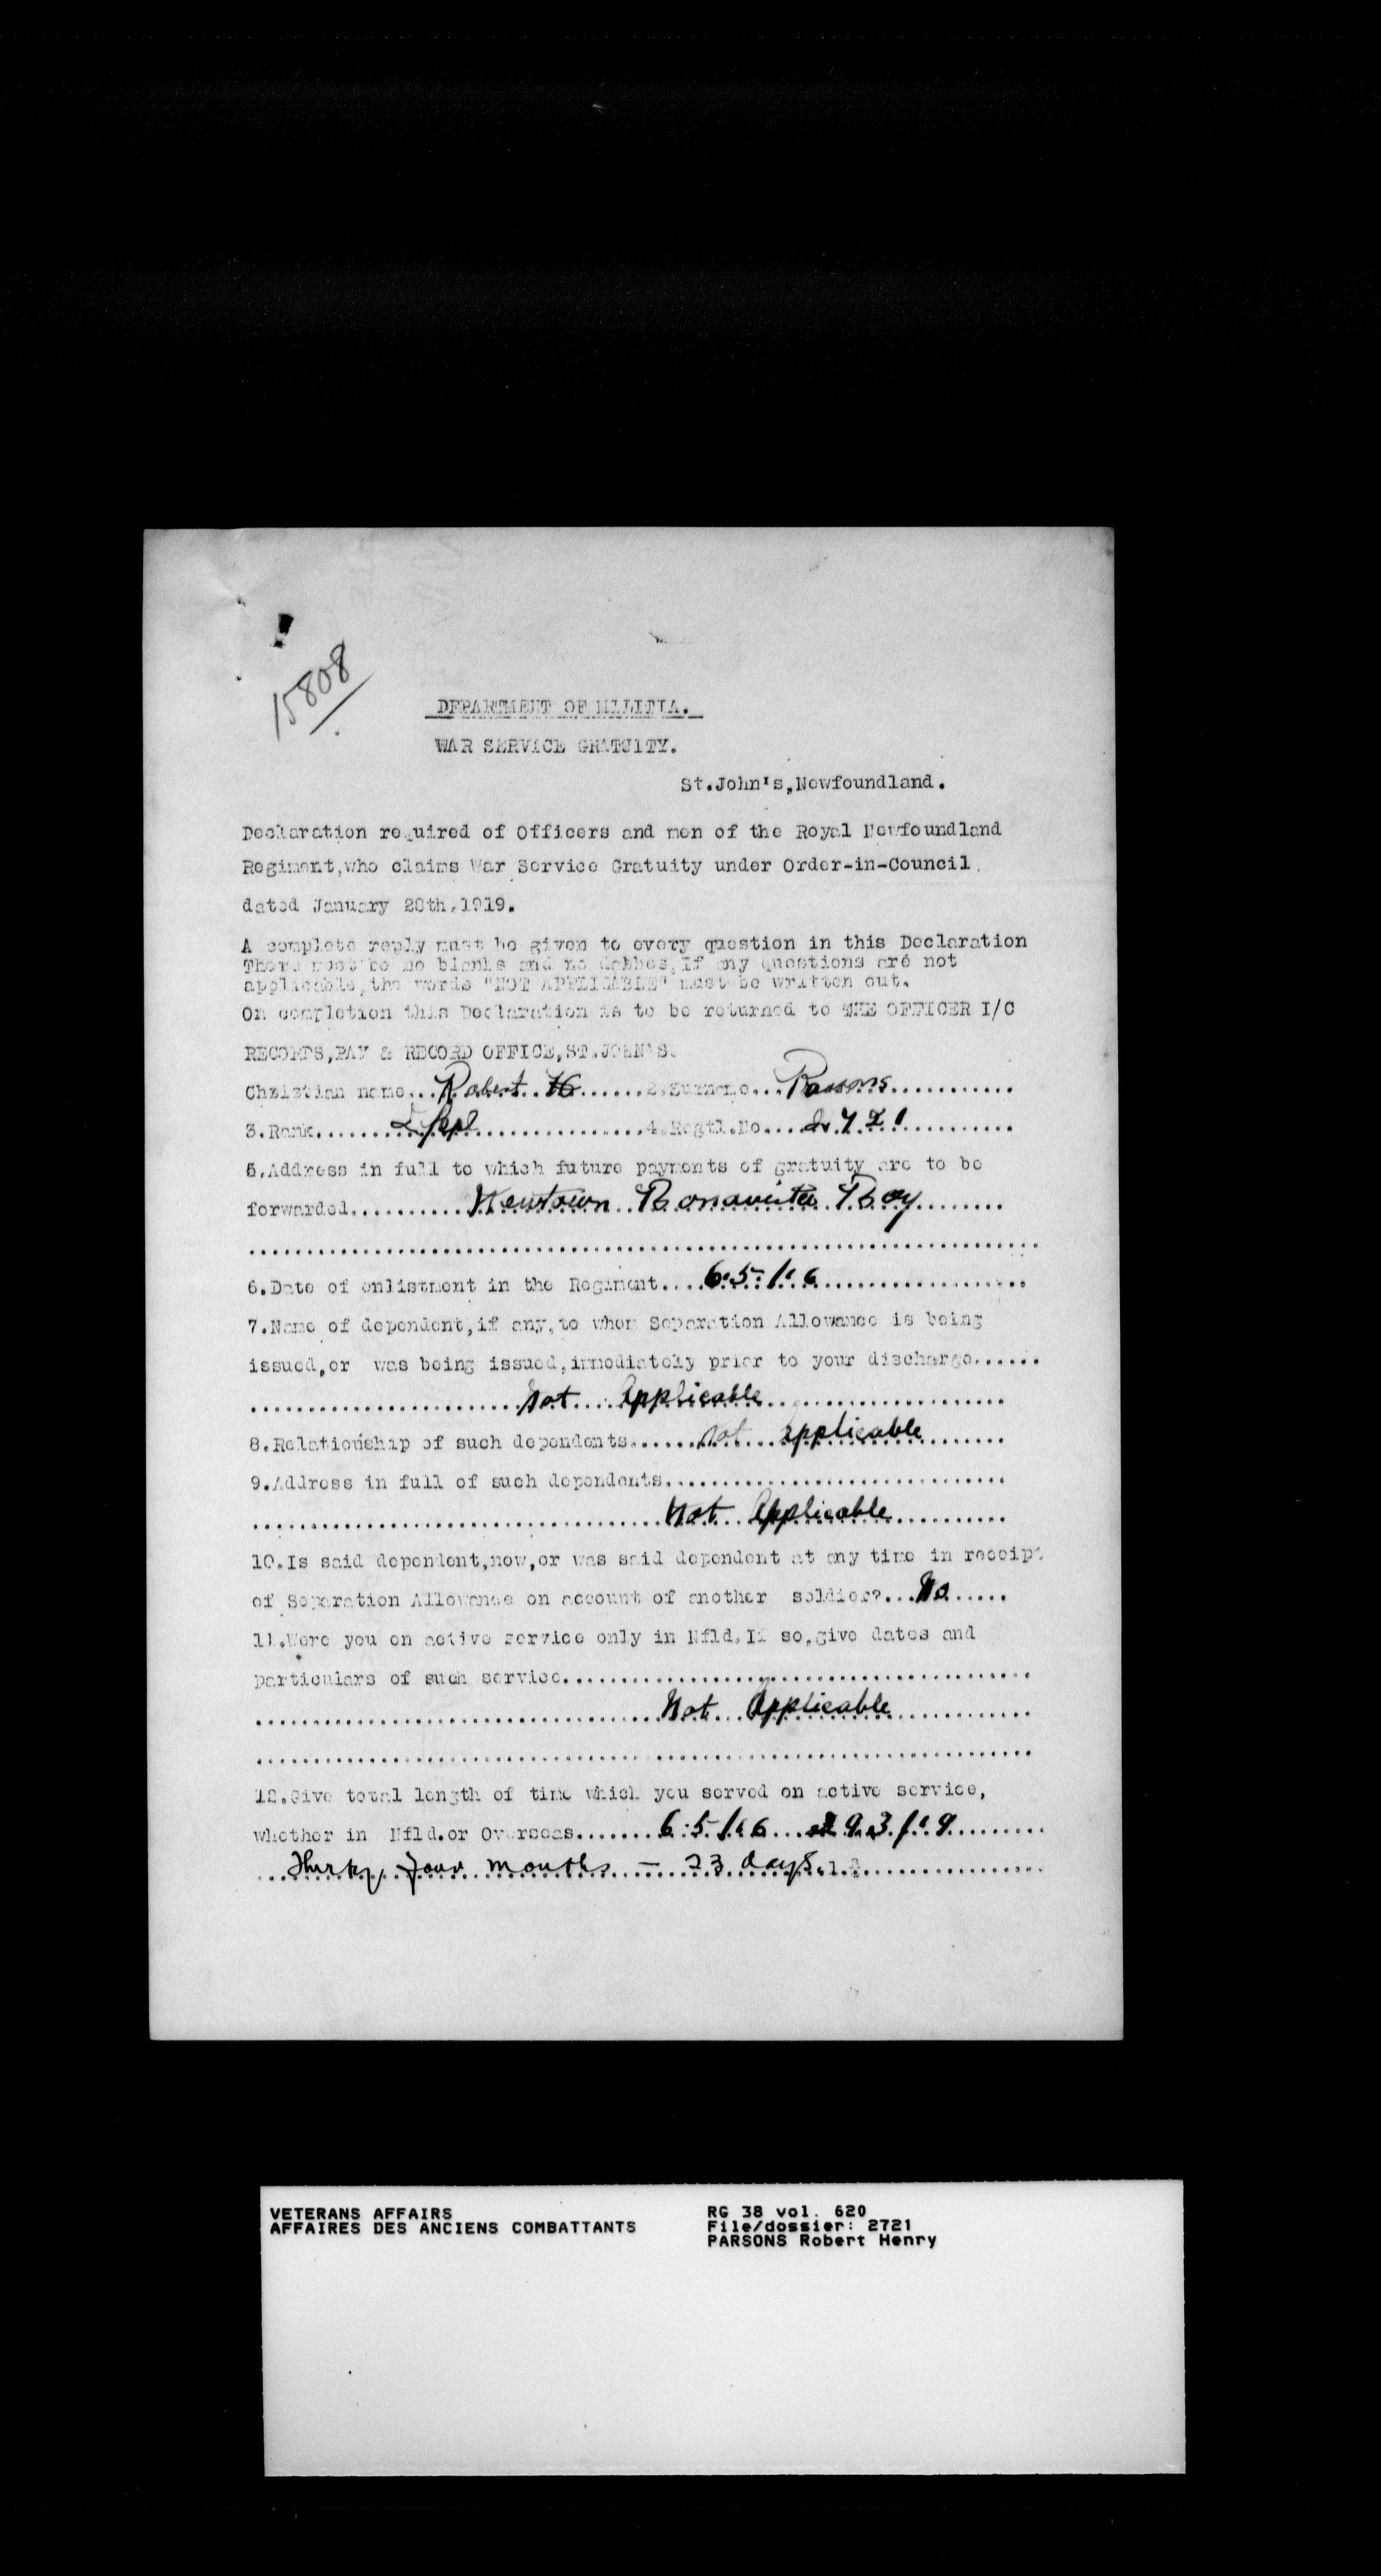 15808
DEPARTMENT OF MILITIA.
WAR SERVICE GRATUITY.
St.John's,Newfoundland.
Declaration required of Officers and men of the Royal Newfoundland
Regiment,who claims War Service Gratuity under Order-in-Council
dated January 28th,1919.
A complete reply must be given to every question in this Declaration
There must be no blanks and no dashes,If any questions are not
applicable,the words "NOT APPLICABLE" must be written out.
On completion this Declaration is to be returned to THE OFFICER I/C
RECORDS,PAY & RECORD OFFICE,ST.JOHN'S.
Christian name...Robert H......2.Surname...Parsons...........
3.Rank.......L Cpl...............4.Regtl.No....2721...........
5.Address in full to which future payments of gratuity are to be
forwarded..........Newtown Bonavista Bay........
6.Date of enlistment in the Regiment....6.5.16..................
7.Name of dependent,if any,to whom Separation Allowance is being
issued,or was being issued,immediately prior to your discharge......
.......................Not Applicable.....................
8.Relationship of such dependents......Not applicable.......
9.Address in full of such dependents.............................
...................................Not Applicable..........
10.Is said dependent,now,or was said dependent at any time in receipt
of Separation Allowance on account of another soldier?...No.....
11.Were you on active service only in Nfld.If so,give dates and
particulars of such service.......................................
...................................Not Applicable............
12.Give total length of time which you served on active service,
whether in Nfld.or Overseas.......6.5.16 29.3.19........
Thirty four months - 23 days
VETERANS AFFAIRS
AFFAIRES DES ANCIENS COMBATTANTS
RG 38 vol. 620
File/dossier: 2721
PARSONS Robert Henry